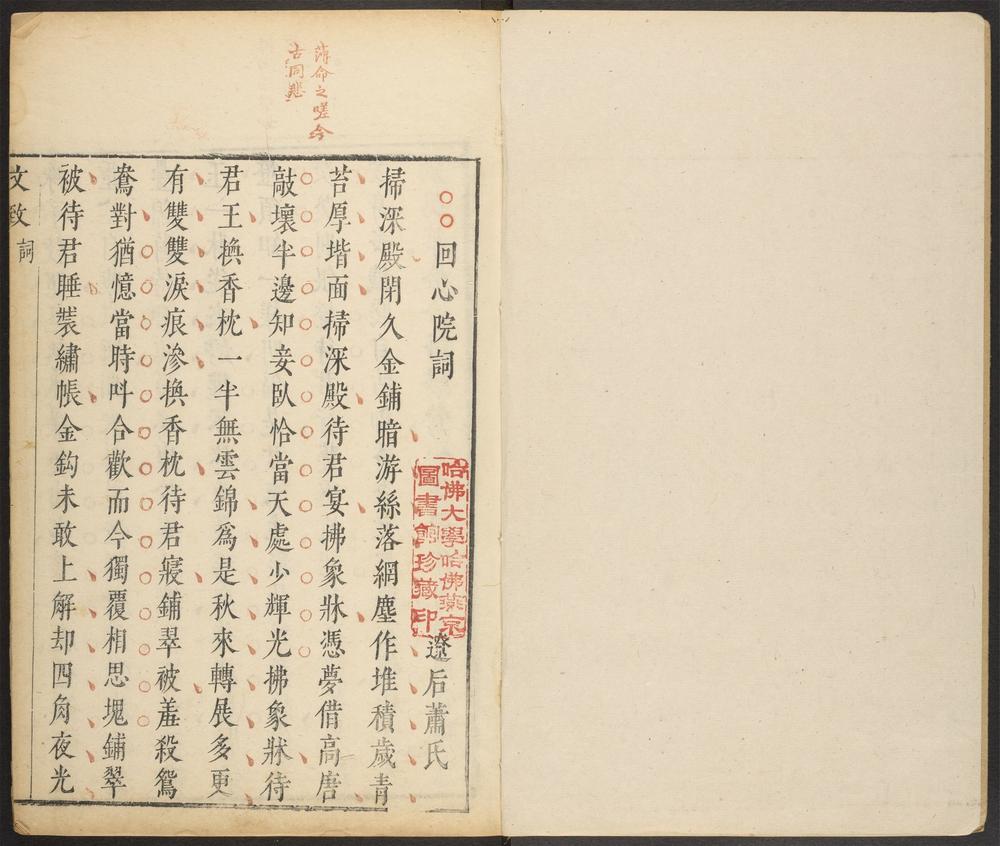 薄命之嗟今
古同悲
回心院詞
遼后蕭氏
哈佛大學哈佛燕京
圖書館珍藏印
掃深殿閉久金鋪暗游絲落網塵作堆積歲青
苔厚堦面掃深殿待君宴拂象牀憑夢借高唐
敲壞半邊知妾臥恰當天處少輝光拂象牀待
君王換香枕一半無雲錦爲是秋來轉展多更
有雙雙淚痕滲換香枕待君寢鋪翠被羞殺鴛
鴦對猶憶當時呌合歡而今獨覆相思塊鋪翠
被待君睡裝繡帳金鈎未敢上解却四角夜光
文致 詞